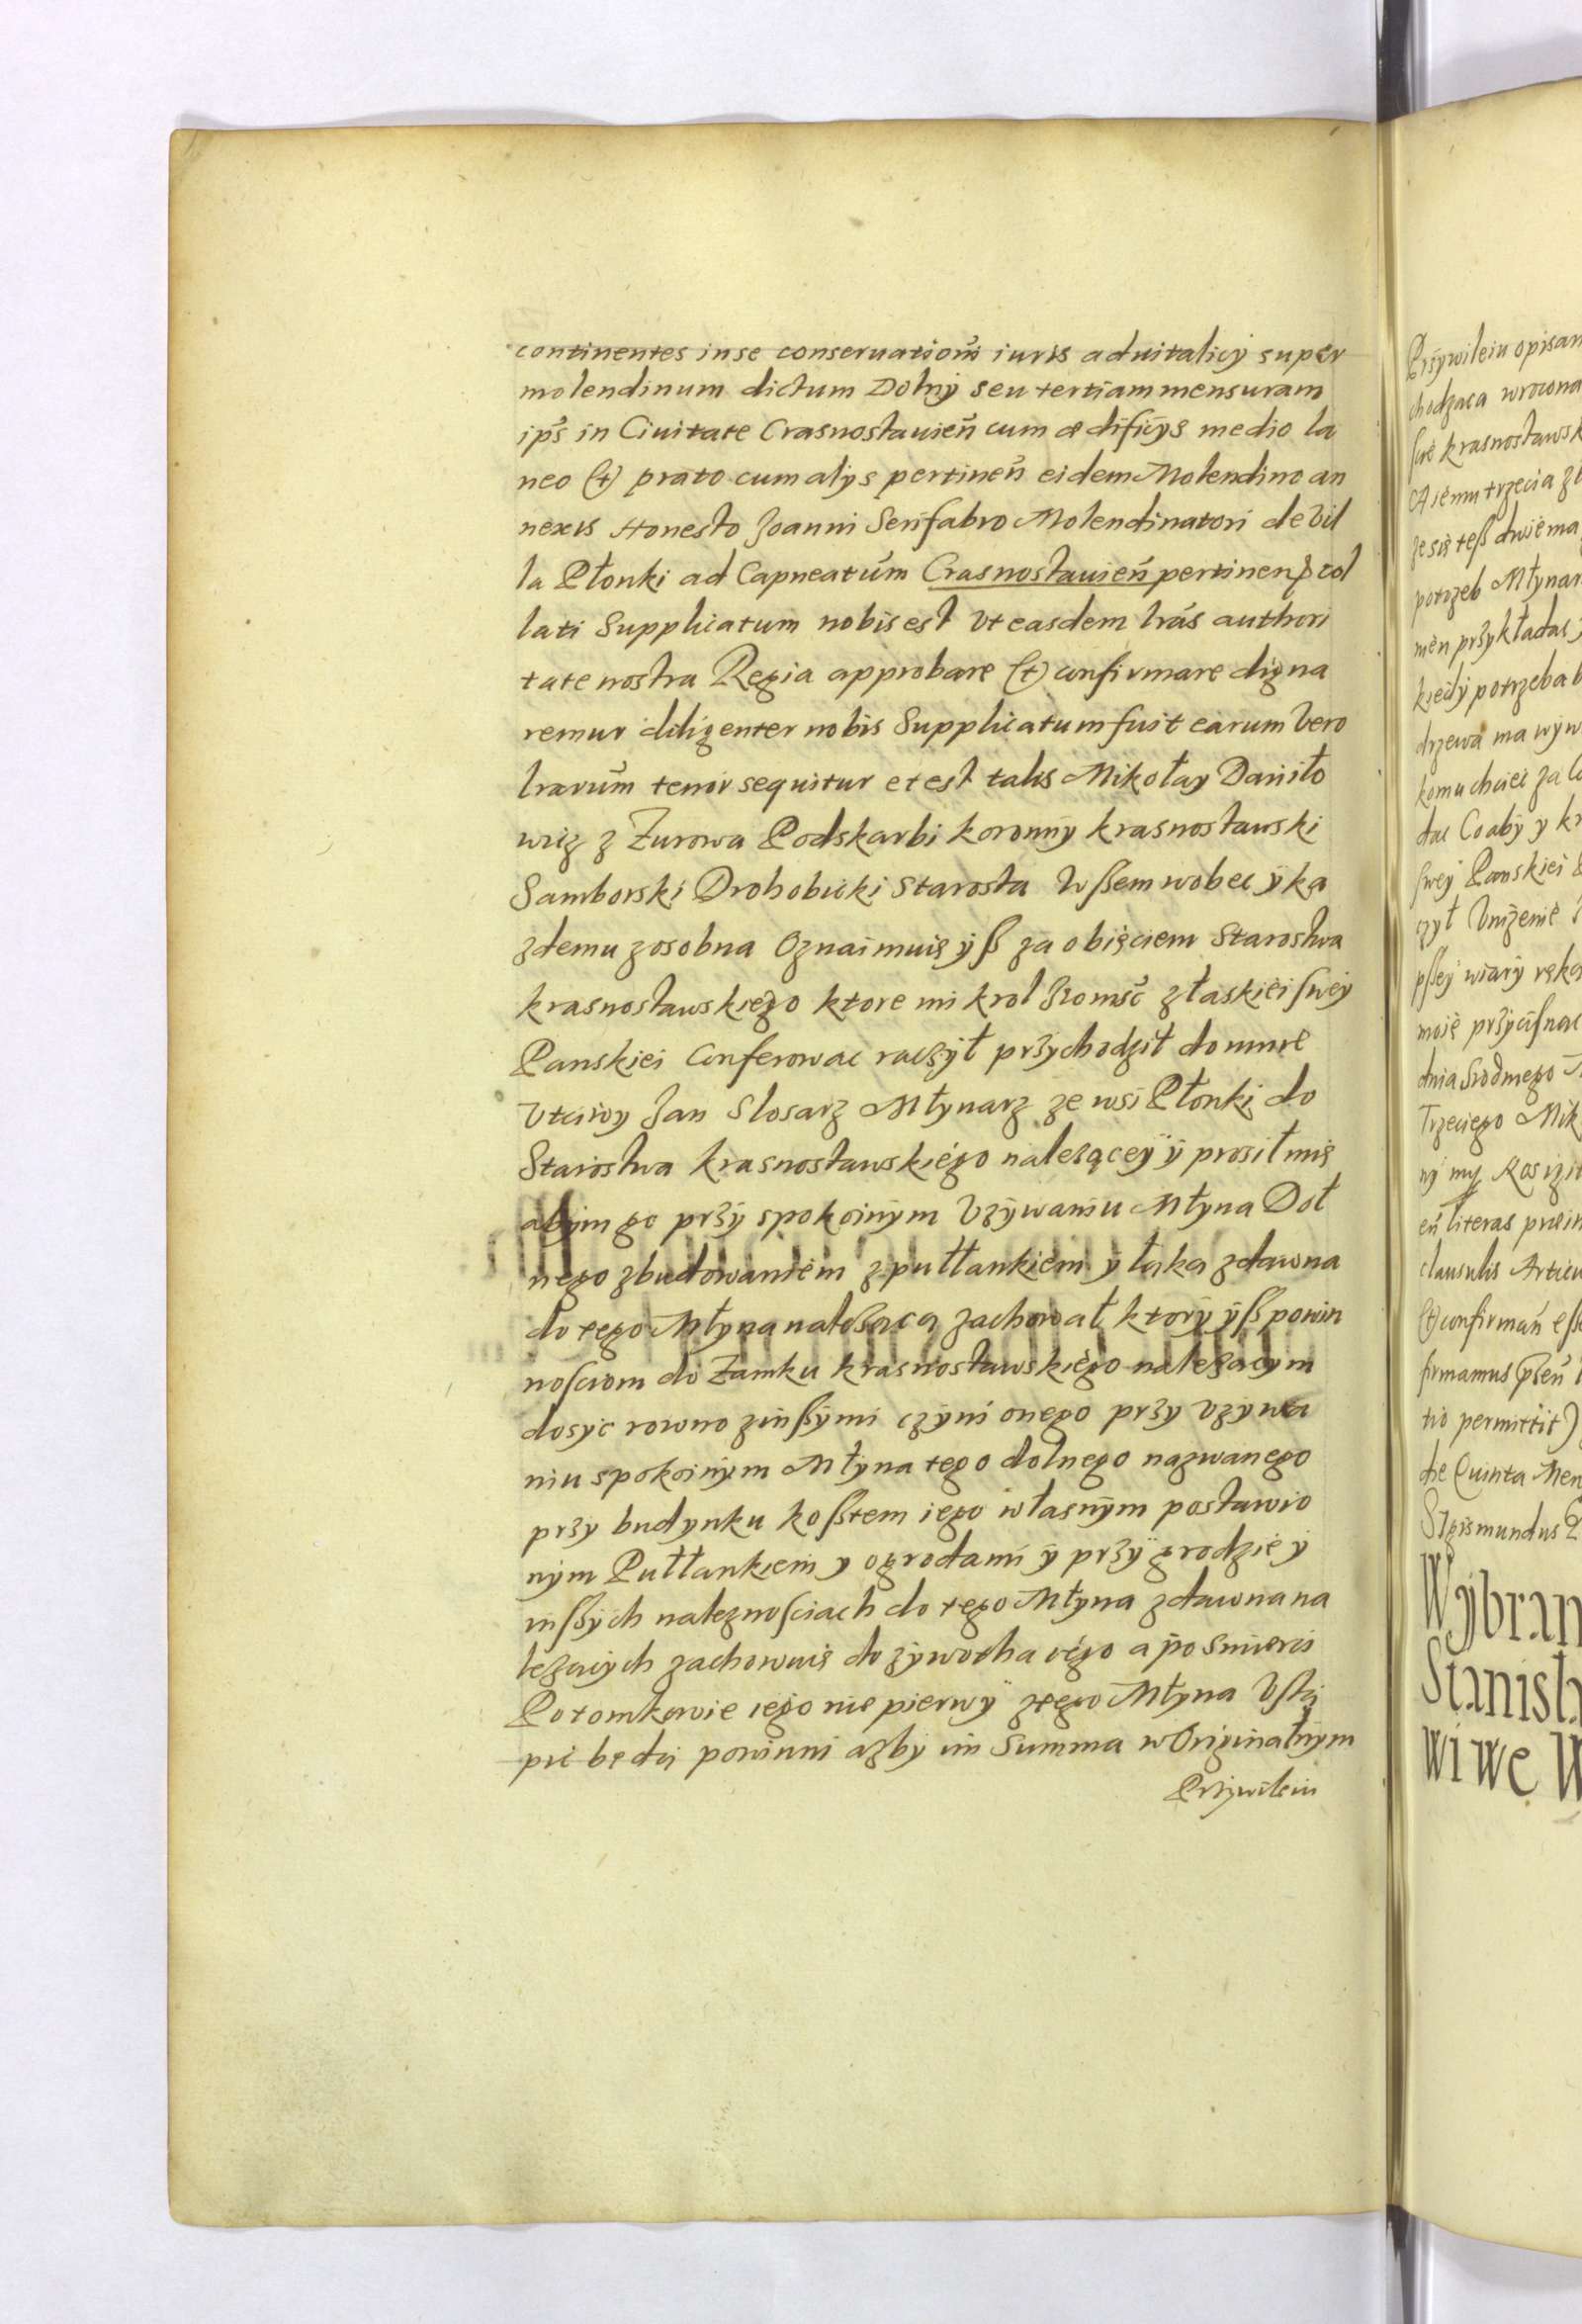 continentes in se conseruationē iuris aduitalicÿ super
molendinum dictum Dolnÿ seu tertiam mensuram
ipš in Ciuitate Crasnostauień cum ædificÿs medio la
neo (et) prato cum alÿs pertineń eidem Molendino an
nexis Honesto Joanni Serifabro Molendinatori de Vil
la Płonki ad Capneatum Crasnostauień pertineń col
lati Supplicatum nobis est Vt easdem lrás authori
tate nostra Regia approbare (et) confirmare digna
remur diligenter nobis Supplicatum fuit earum Vero
lrarum tenor sequitur et est talis Mikołay Daniło
wicz z Zurowa Podskarbi koronnÿ krasnostawski
Samborski Drohobicki Starosta Wßem wobec ÿ ka
zdemu zosobna Oznaimuię ÿß za obięciem Starostwa
krasnostawskiego ktore mi krol Jeomsć z łaskiei swey
Panskiei Conferowac raczÿł przychodził do mnie
Vtciwy Jan Slosarz Młynarz ze wsi Płonki do
Starostwa krasnostawskiégo należącey ÿ prosił mię
abÿm go przÿ spokoinÿm Vzÿwaniu Młyna Doł
nego zbudowaniem z pułłankiem ÿ łąką zdawna
do tego Młyna nalezącą zachował ktorÿ ÿß powin
nosciom do Zamku krasnostawskiégo nalezącym
dosyc rowno z inßÿmi czÿni onego przy Vzywa
niu spokoinÿm Młyna tego dolnego nazwanego
przy budynku koßtem iego własnÿm postawio
nÿm Pułłankiem y ogrodami ÿ przÿ grodzie ÿ
inßÿch naleznosciach do tego Młyna zdawna na
lezących zachowuię do zywotha iégo a po Smierci
Potomkowie iégo nie pierwÿ z tego Młyna Vstą
pic będą powinni azby im Summa w Originalnÿm
Przÿwileiu
Przÿwileiu opisan
chodzaca wrocona
krasnostawsk
potrzeb Młynar
kiedÿ potrzeba b
drzewa ma wyw
komu chciec za
dac Coaby y kr
swey Panskiei
czÿł Vnizenie
wiarÿ ręką
moię przÿcisnac
dnia Siodmego
Trzeciego Mik
eń literas prein
clausulis Articu
(et) confirmań esse
firmamus
tio permittit)
die Quinta Men
Sigismundus
Wÿbran
Stanisł
wi we W